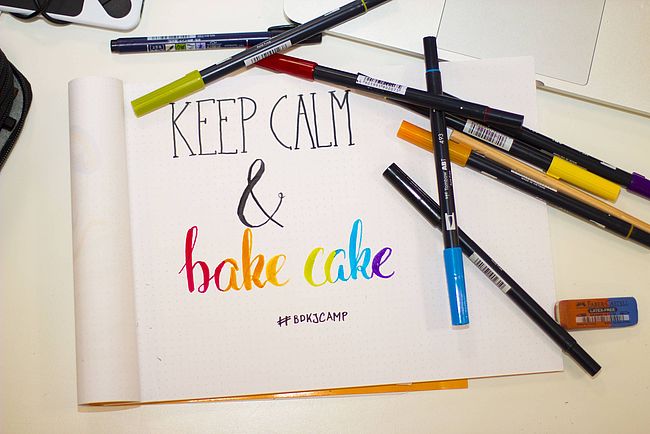 KEEP CALM
&
bake cake
#BDKJCAMP
FABER-CASTELL
LATEX-FREE
ABT
493